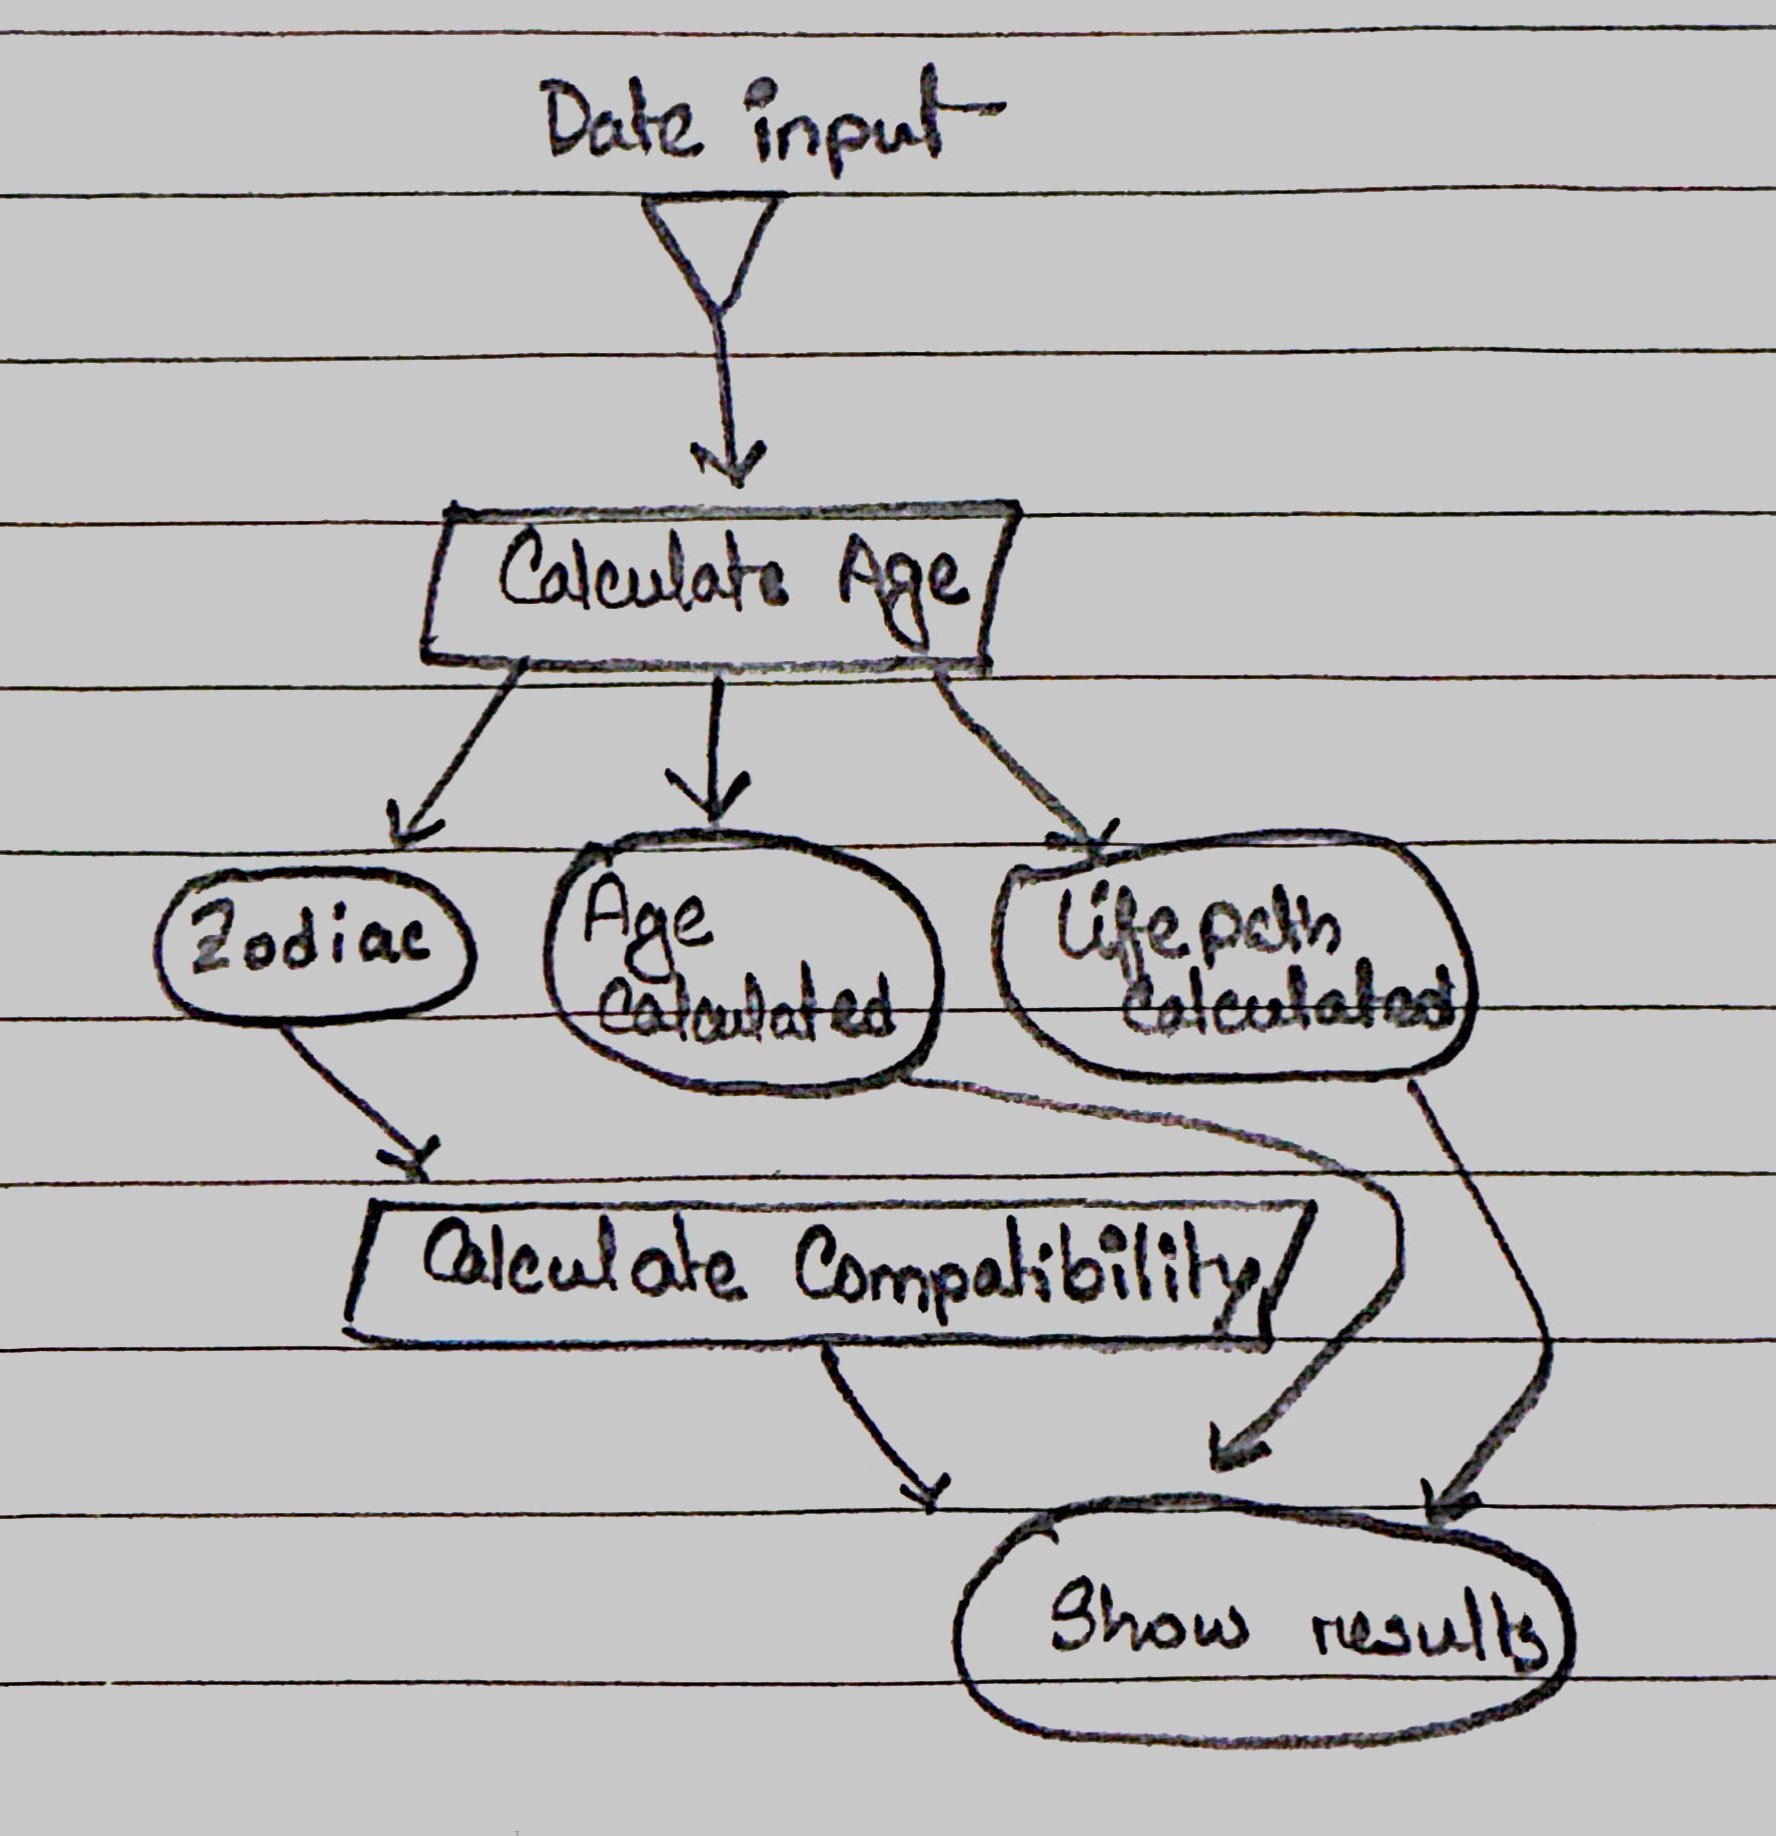 Date input
Calculate Age
Zodiac
Age
Calculated
Lifepath
Calculated
Calculate Compatibility
Show results